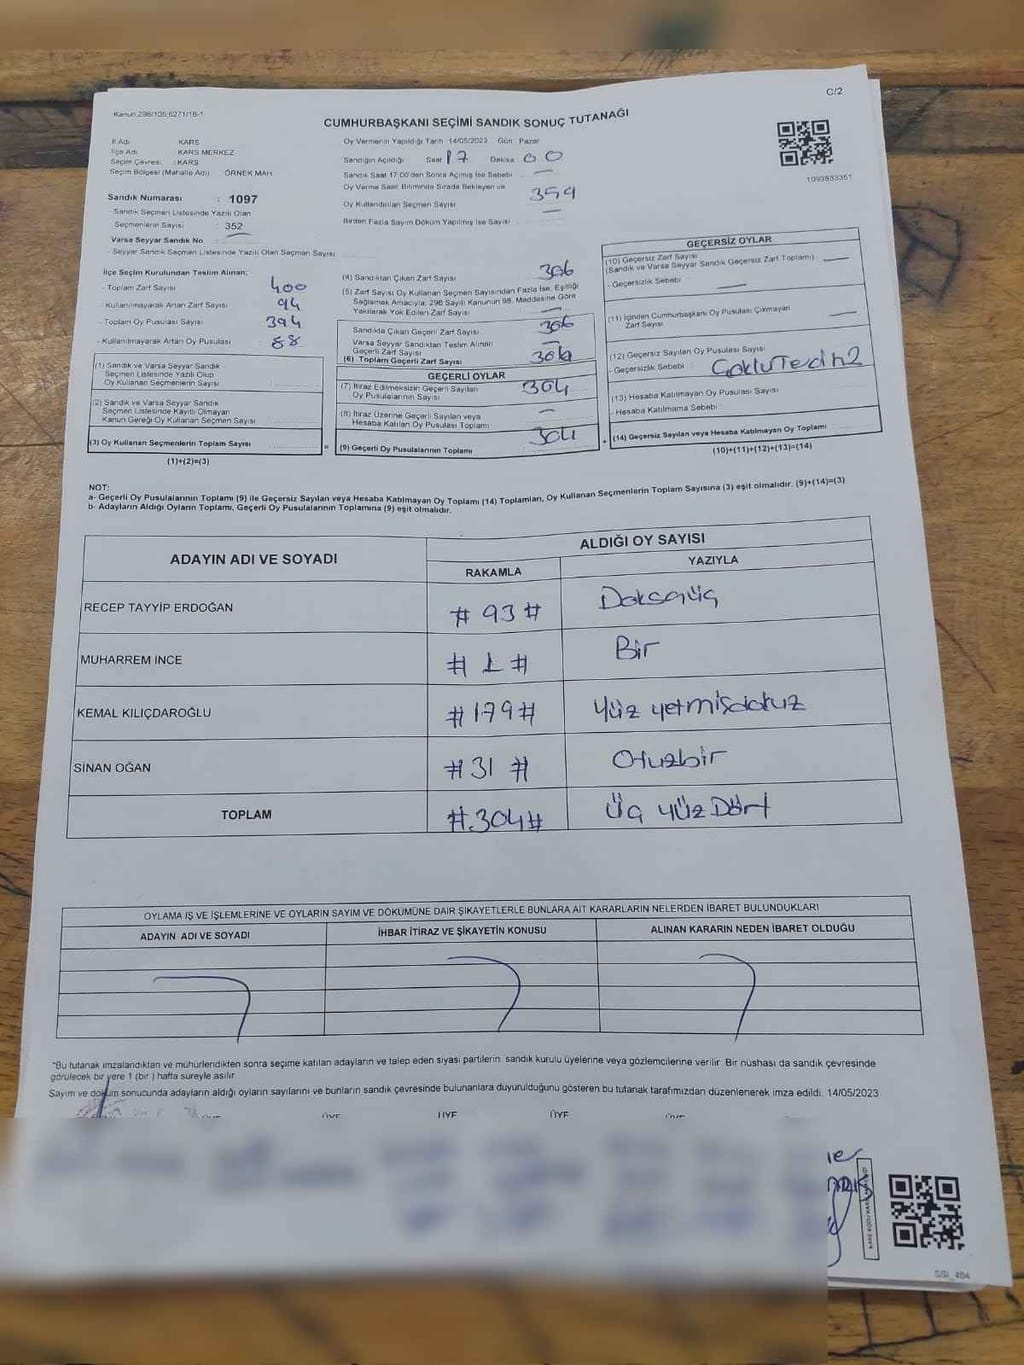 C/2
Kanun 298/105 6271/18-1
CUMHURBAŞKANI SEÇİMİ SANDIK SONUÇ TUTANAĞI
İl Adı : KARS
İlçe Adı : KARS MERKEZ
Seçim Çevresi : KARS
Seçim Bölgesi (Mahalle Adı) ÖRNEK MAH
Sandık Numarası : 1097
Sandık Seçmen Listesinde Yazılı Olan
Seçmenlerin Sayısı : 352
Varsa Seyyar Sandık No
- Seyyar Sandık Seçmen Listesinde Yazılı Olan Seçmen Sayısı
Oy Vermenin Yapıldığı Tarih 14/05/2023 Gün Pazar
Sandığın Açıldığı Saat 17 Dakika 00
Sandık Saat 17.00'den Sonra Açılmış İse Sebebi
Oy Verme Saati Bitiminde Sırada Bekleyen ve
Oy Kullandırılan Seçmen Sayısı
Birden Fazla Sayım Döküm Yapılmış İse Sayısı
1093833351
İlçe Seçim Kurulundan Teslim Alınan;
- Toplam Zarf Sayısı 400
- Kullanılmayarak Artan Zarf Sayısı 94
- Toplam Oy Pusulası Sayısı 394
- Kullanılmayarak Artan Oy Pusulası 88
(1) Sandık ve Varsa Seyyar Sandık
Seçmen Listesinde Yazılı Olup
Oy Kullanan Seçmenlerin Sayısı
(2) Sandık ve Varsa Seyyar Sandık
Seçmen Listesinde Kayıtlı Olmayan
Kanun Gereği Oy Kullanan Seçmen Sayısı
(3) Oy Kullanan Seçmenlerin Toplam Sayısı
(1)+(2)=(3)
(4) Sandıktan Çıkan Zarf Sayısı 306
(5) Zarf Sayısı Oy Kullanan Seçmen Sayısından Fazla İse, Eşitliği
Sağlamak Amacıyla, 298 Sayılı Kanunun 98. Maddesine Göre
Yakılarak Yok Edilen Zarf Sayısı
Sandıkta Çıkan Geçerli Zarf Sayısı 306
Varsa Seyyar Sandıktan Teslim Alınan
Geçerli Zarf Sayısı
(6) Toplam Geçerli Zarf Sayısı
GEÇERLİ OYLAR
(7) İtiraz Edilmeksizin Geçerli Sayılan
Oy Pusulalarının Sayısı 304
(8) İtiraz Üzerine Geçerli Sayılan veya
Hesaba Katılan Oy Pusulası Toplamı
(9) Geçerli Oy Pusulalarının Toplamı 304
GEÇERSİZ OYLAR
(10) Geçersiz Zarf Sayısı
(Sandık ve Varsa Seyyar Sandık Geçersiz Zarf Toplamı)
- Geçersizlik Sebebi
(11) İçinden Cumhurbaşkanı Oy Pusulası Çıkmayan
Zarf Sayısı
(12) Geçersiz Sayılan Oy Pusulası Sayısı
- Geçersizlik Sebebi : 2
(13) Hesaba Katılmayan Oy Pusulası Sayısı
- Hesaba Katılmama Sebebi
(14) Geçersiz Sayılan veya Hesaba Katılmayan Oy Toplamı
(10)+(11)+(12)+(13)=(14)
NOT:
a- Geçerli Oy Pusulalarının Toplamı (9) ile Geçersiz Sayılan veya Hesaba Katılmayan Oy Toplamı (14) Toplamları, Oy Kullanan Seçmenlerin Toplam Sayısına (3) eşit olmalıdır. (9)+(14)=(3)
b- Adayların Aldığı Oyların Toplamı, Geçerli Oy Pusulalarının Toplamına (9) eşit olmalıdır.
ADAYIN ADI VE SOYADI ALDIĞI OY SAYISI
RAKAMLA YAZIYLA
RECEP TAYYİP ERDOĞAN # 93 # Doksaüç
MUHARREM İNCE # 1 # Bir
KEMAL KILIÇDAROĞLU # 179 # Yüz yetmişdokuz
SİNAN OĞAN # 31 # Otuzbir
TOPLAM #.304# Üç yüz Dört
OYLAMA İŞ VE İŞLEMLERİNE VE OYLARIN SAYIM VE DÖKÜMÜNE DAİR ŞİKAYETLERLE BUNLARA AİT KARARLARIN NELERDEN İBARET BULUNDUKLARI
ADAYIN ADI VE SOYADI İHBAR İTİRAZ VE ŞİKAYETİN KONUSU ALINAN KARARIN NEDEN İBARET OLDUĞU
*Bu tutanak imzalandıktan ve mühürlendikten sonra seçime katılan adayların ve talep eden siyasi partilerin sandık kurulu üyelerine veya gözlemcilerine verilir. Bir nüshası da sandık çevresinde
görülecek bir yere 1 (bir) hafta süreyle asılır.
Sayım ve döküm sonucunda adayların aldığı oyların sayılarını ve bunların sandık çevresinde bulunanlara duyurulduğunu gösteren bu tutanak tarafımızdan düzenlenerek imza edildi. 14/05/2023
ÜYE ÜYE ÜYE ÜYE